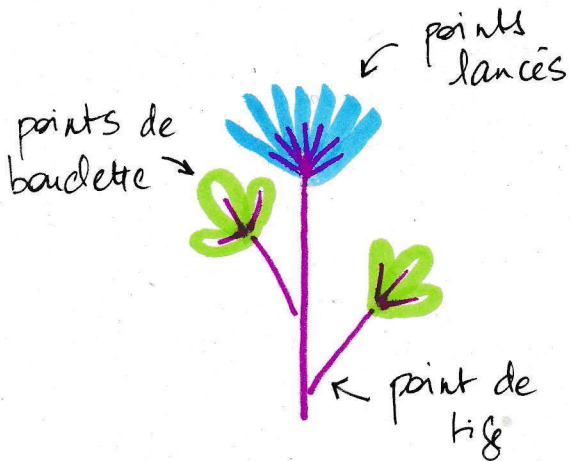 points
lancés
points de
bouclette
point de
tige